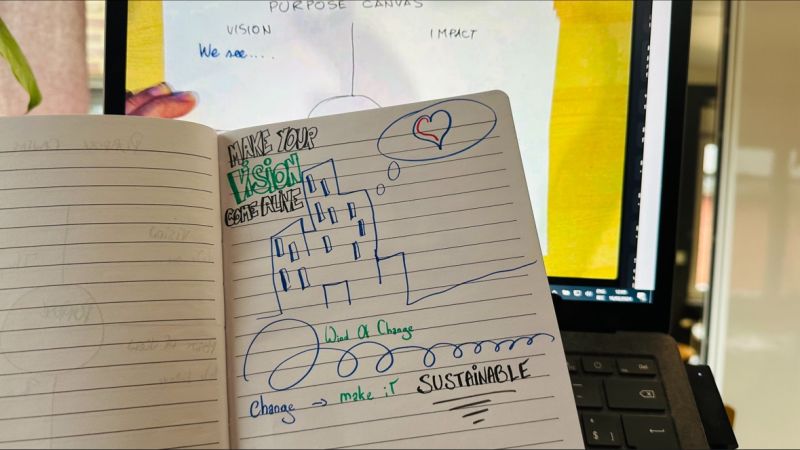 PURPOSE CANVAS
VISION
IMPACT
We see....
MAKE YOUR
VISION
COME ALIVE
Wind Of Change
Change → make it SUSTAINABLE